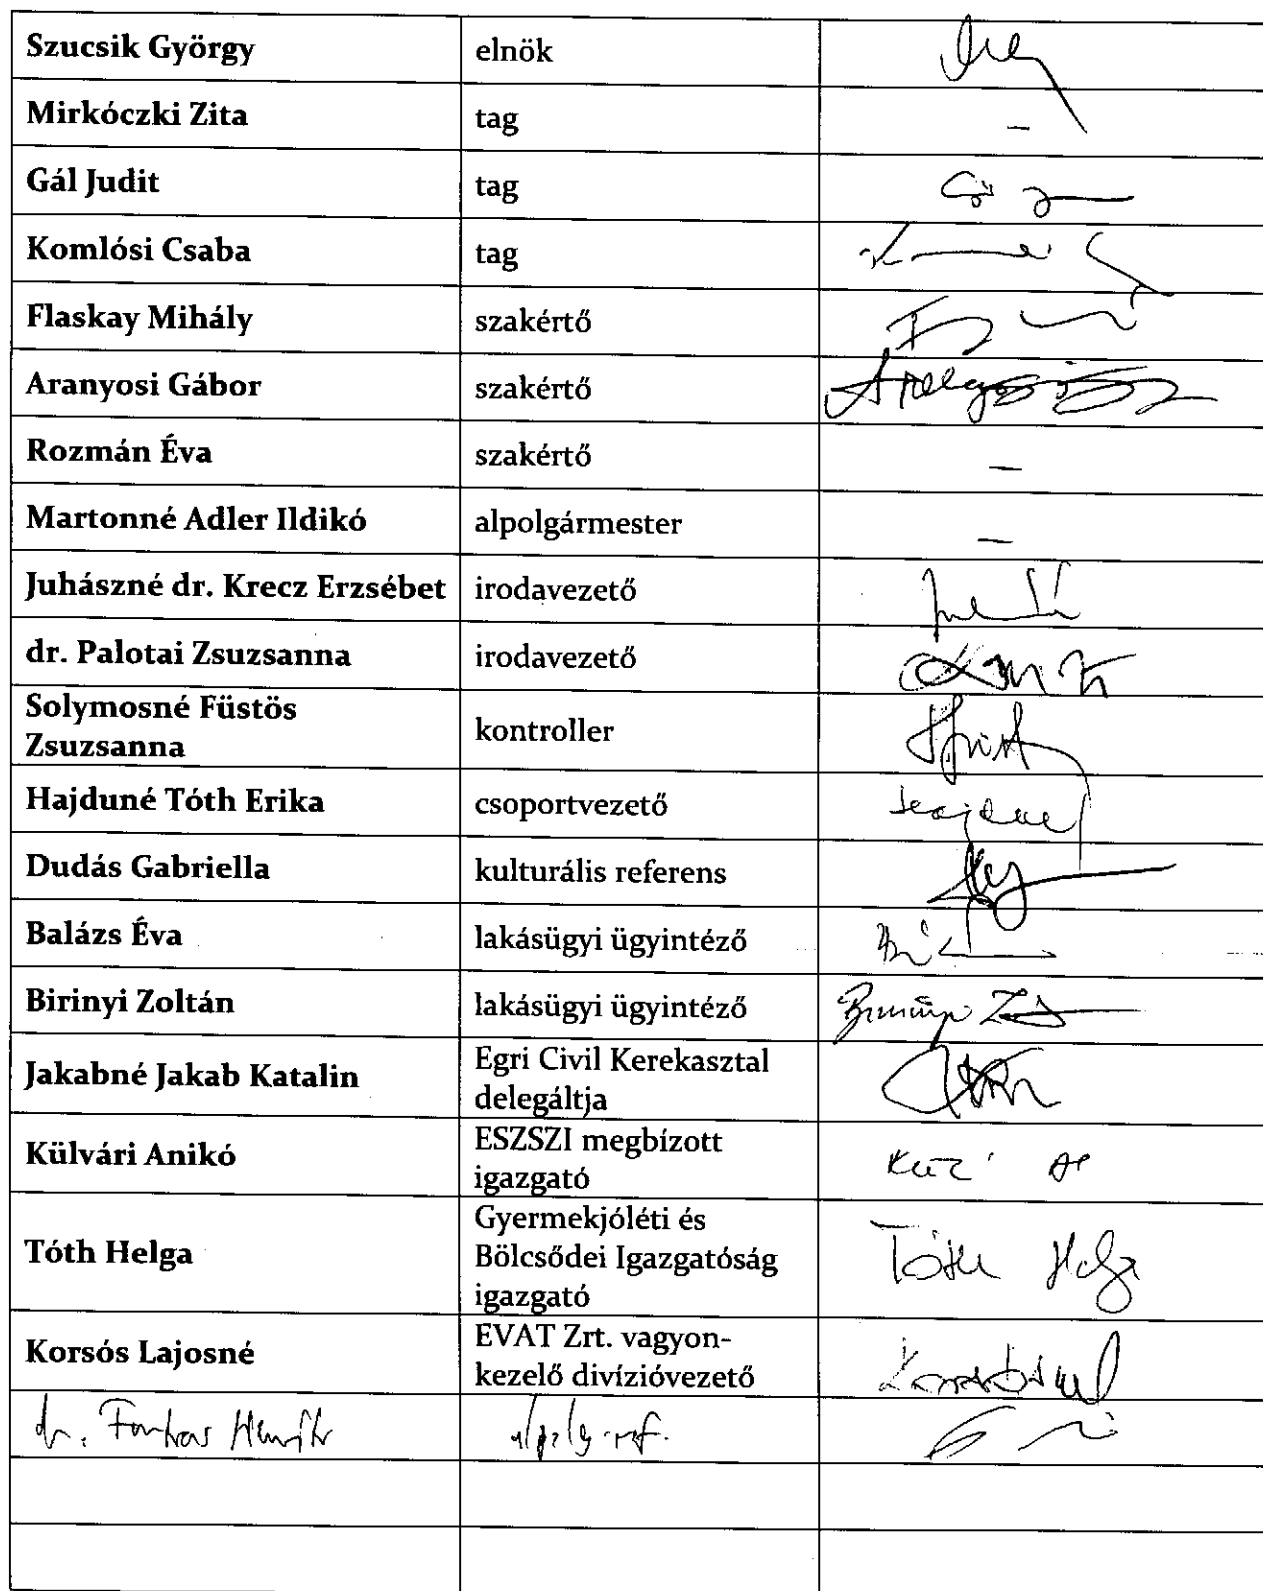 Szucsik György elnök
Mirkóczki Zita tag –
Gál Judit tag
Komlósi Csaba tag
Flaskay Mihály szakértő
Aranyosi Gábor szakértő
Rozmán Éva szakértő –
Martonné Adler Ildikó alpolgármester –
Juhászné dr. Krecz Erzsébet irodavezető
dr. Palotai Zsuzsanna irodavezető
Solymosné Füstös
Zsuzsanna
kontroller
Hajduné Tóth Erika csoportvezető
Dudás Gabriella kulturális referens
Balázs Éva lakásügyi ügyintéző
Birinyi Zoltán lakásügyi ügyintéző
Jakabné Jakab Katalin
Egri Civil Kerekasztal
delegáltja
Külvári Anikó
ESZSZI megbízott
igazgató
Tóth Helga
Gyermekjóléti és
Bölcsődei Igazgatóság
igazgató
Tóth Helga
Korsós Lajosné
EVAT Zrt. vagyon-
kezelő divízióvezető
dr. Farkas